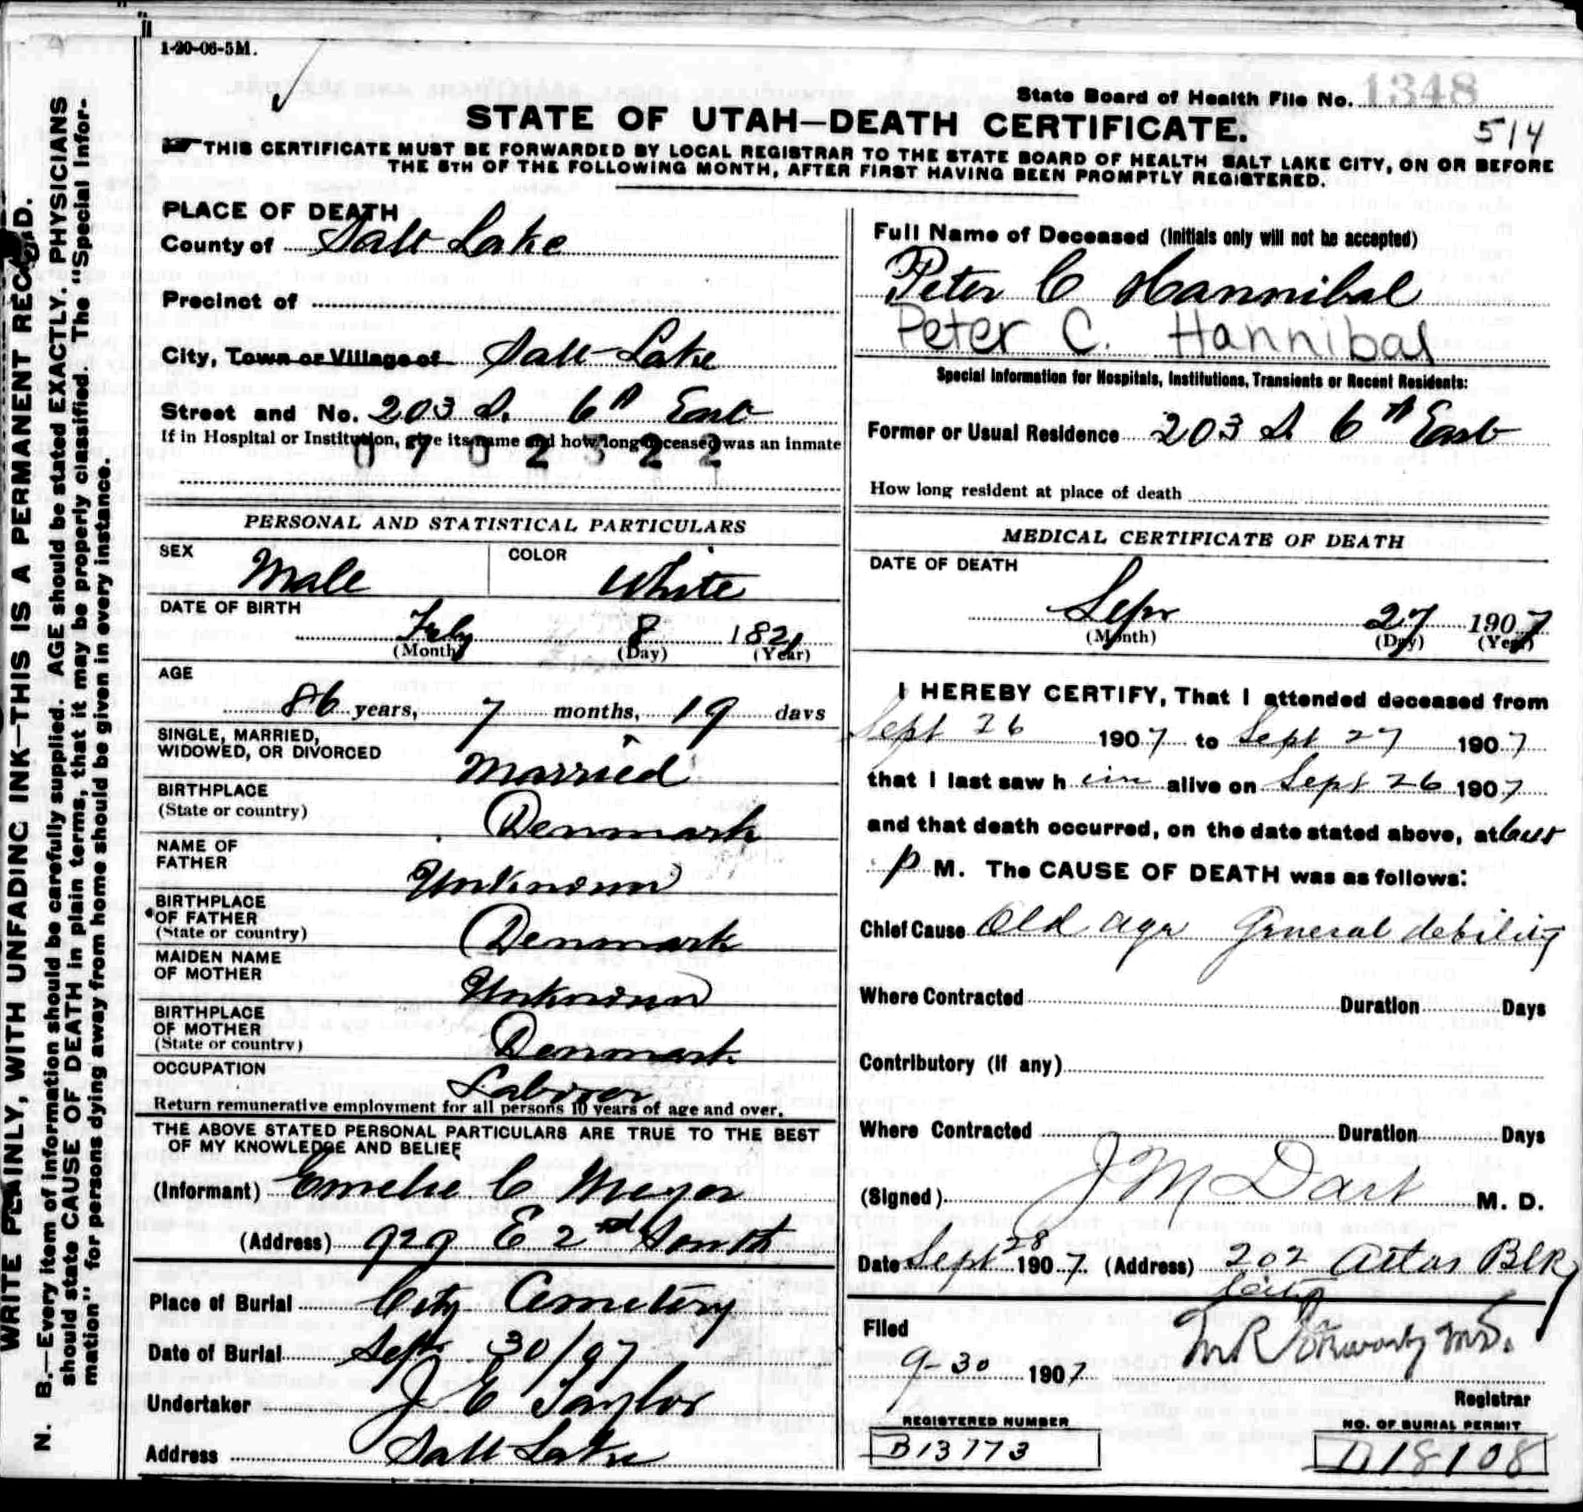 1-20-06-5M.
State Board of Health File No. 1348
514
STATE OF UTAH—DEATH CERTIFICATE.
THIS CERTIFICATE MUST BE FORWARDED BY LOCAL REGISTRAR TO THE STATE BOARD OF HEALTH SALT LAKE CITY, ON OR BEFORE
THE 5TH OF THE FOLLOWING MONTH, AFTER FIRST HAVING BEEN PROMPTLY REGISTERED.
WRITE PLAINLY, WITH UNFADING INK—THIS IS A PERMANENT RECORD.
N. B.—Every item of information should be carefully supplied. AGE should be stated EXACTLY. PHYSICIANS
should state CAUSE OF DEATH in plain terms, that it may be properly classified. The "Special Infor-
mation" for persons dying away from home should be given in every instance.
PLACE OF DEATH
County of Salt Lake
Precinct of
City, Town or Village of Salt Lake
Street and No. 203 S. 6th East
If in Hospital or Institution, give its name and how long deceased was an inmate
0702322
PERSONAL AND STATISTICAL PARTICULARS
SEX Male
COLOR White
DATE OF BIRTH
July 8 1821
(Month) (Day) (Year)
AGE
86 years, 7 months, 19 days
SINGLE, MARRIED,
WIDOWED, OR DIVORCED Married
BIRTHPLACE
(State or country) Denmark
NAME OF
FATHER Unknown
BIRTHPLACE
OF FATHER
(State or country) Denmark
MAIDEN NAME
OF MOTHER Unknown
BIRTHPLACE
OF MOTHER
(State or country) Denmark
OCCUPATION Laborer
Return remunerative employment for all persons 10 years of age and over.
THE ABOVE STATED PERSONAL PARTICULARS ARE TRUE TO THE BEST
OF MY KNOWLEDGE AND BELIEF
(Informant) Emelie C Meyer
(Address) 929 E 2nd South
Place of Burial City Cemetery
Date of Burial Sept. 30/07
Undertaker J E Taylor
Address Salt Lake
Full Name of Deceased (Initials only will not be accepted)
Peter C Hannibal
Peter C. Hannibal
Special Information for Hospitals, Institutions, Transients or Recent Residents:
Former or Usual Residence 203 S. 6th East
How long resident at place of death
MEDICAL CERTIFICATE OF DEATH
DATE OF DEATH
Sept 27 1907
(Month) (Day) (Year)
I HEREBY CERTIFY, That I attended deceased from
Sept 26 1907 to Sept 27 1907
that I last saw h im alive on Sept 26 1907
and that death occurred, on the date stated above, at
P M. The CAUSE OF DEATH was as follows:
Chief Cause Old age General debility
Where Contracted Duration Days
Contributory (If any)
Where Contracted Duration Days
(Signed) J M Dart M. D.
Date Sept 28 1907 (Address) 202 Atlas Blk
City
Filed
9-30 1907
Registrar
REGISTERED NUMBER
B13773
NO. OF BURIAL PERMIT
D18108